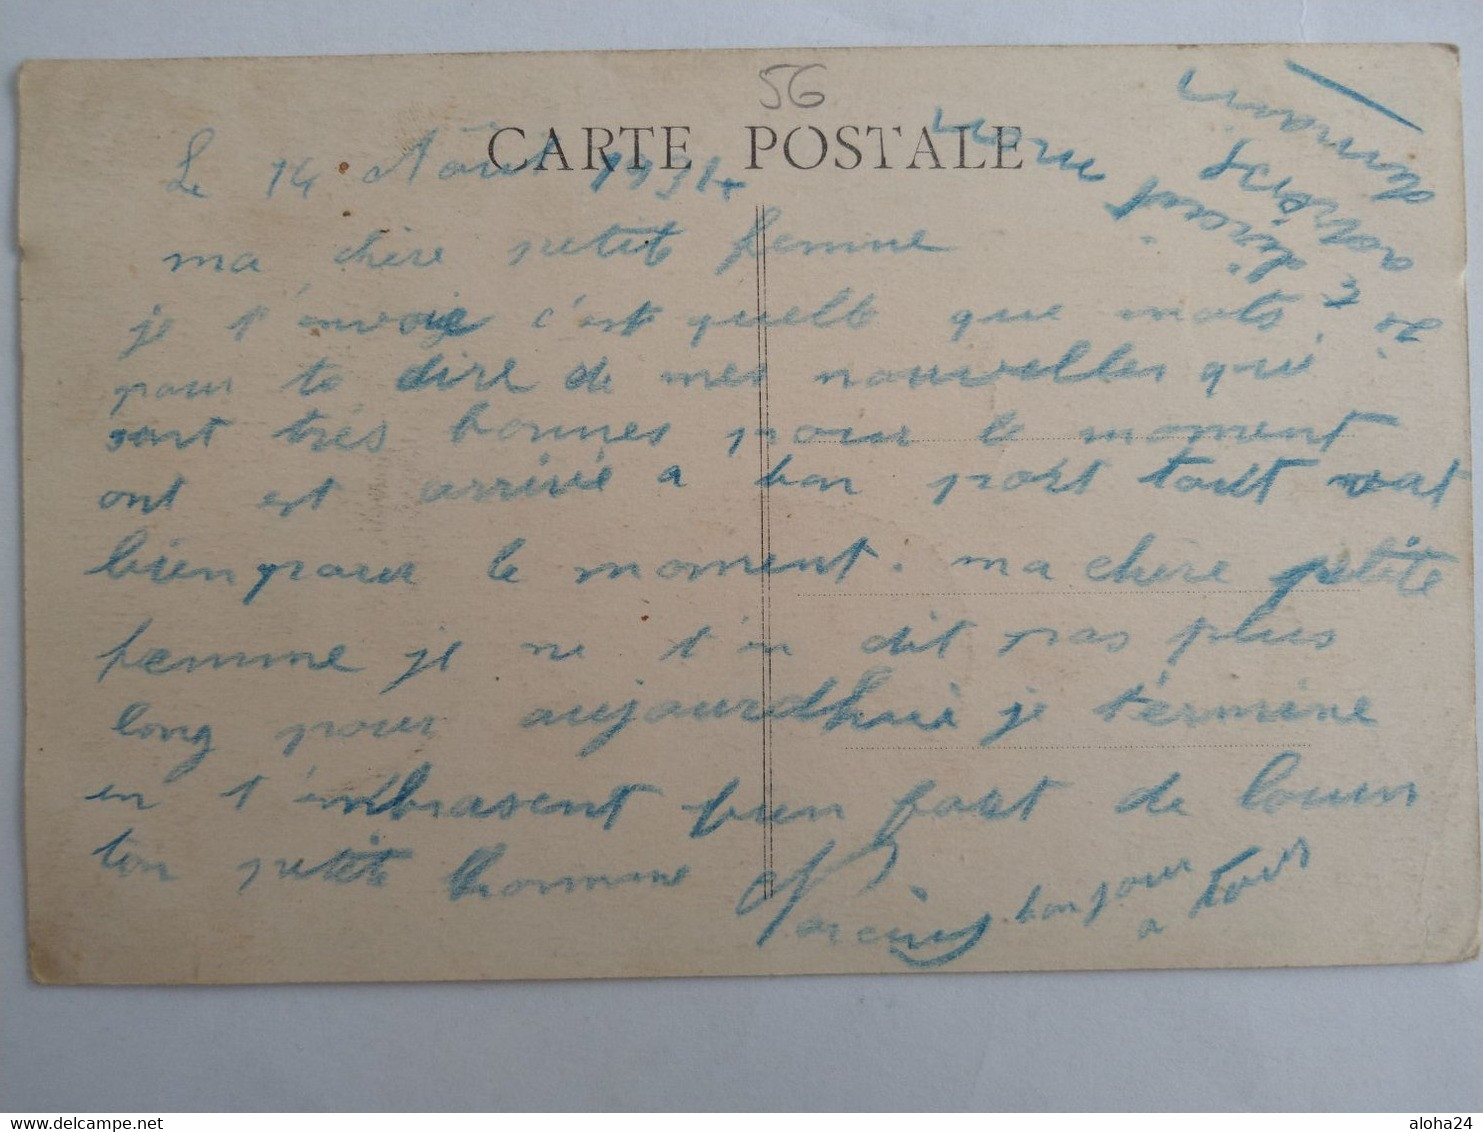 56
CARTE POSTALE
Le 14 Aout 1931
ma chère petite femme
je t'envoie c'est quelt que mots
pour te dire de mes nouvelles qui
sont très bonnes pour le moment
ont est arrivé a bon port tout vat
bien pour le moment. ma chère petite
femme je ne t'en dit pas plus
long pour aujourdhui je termine
en t'embrasent bien fort de louen
ton petite homme Marcius
bonjour
a tous
demain
adrese
diront
aloha24